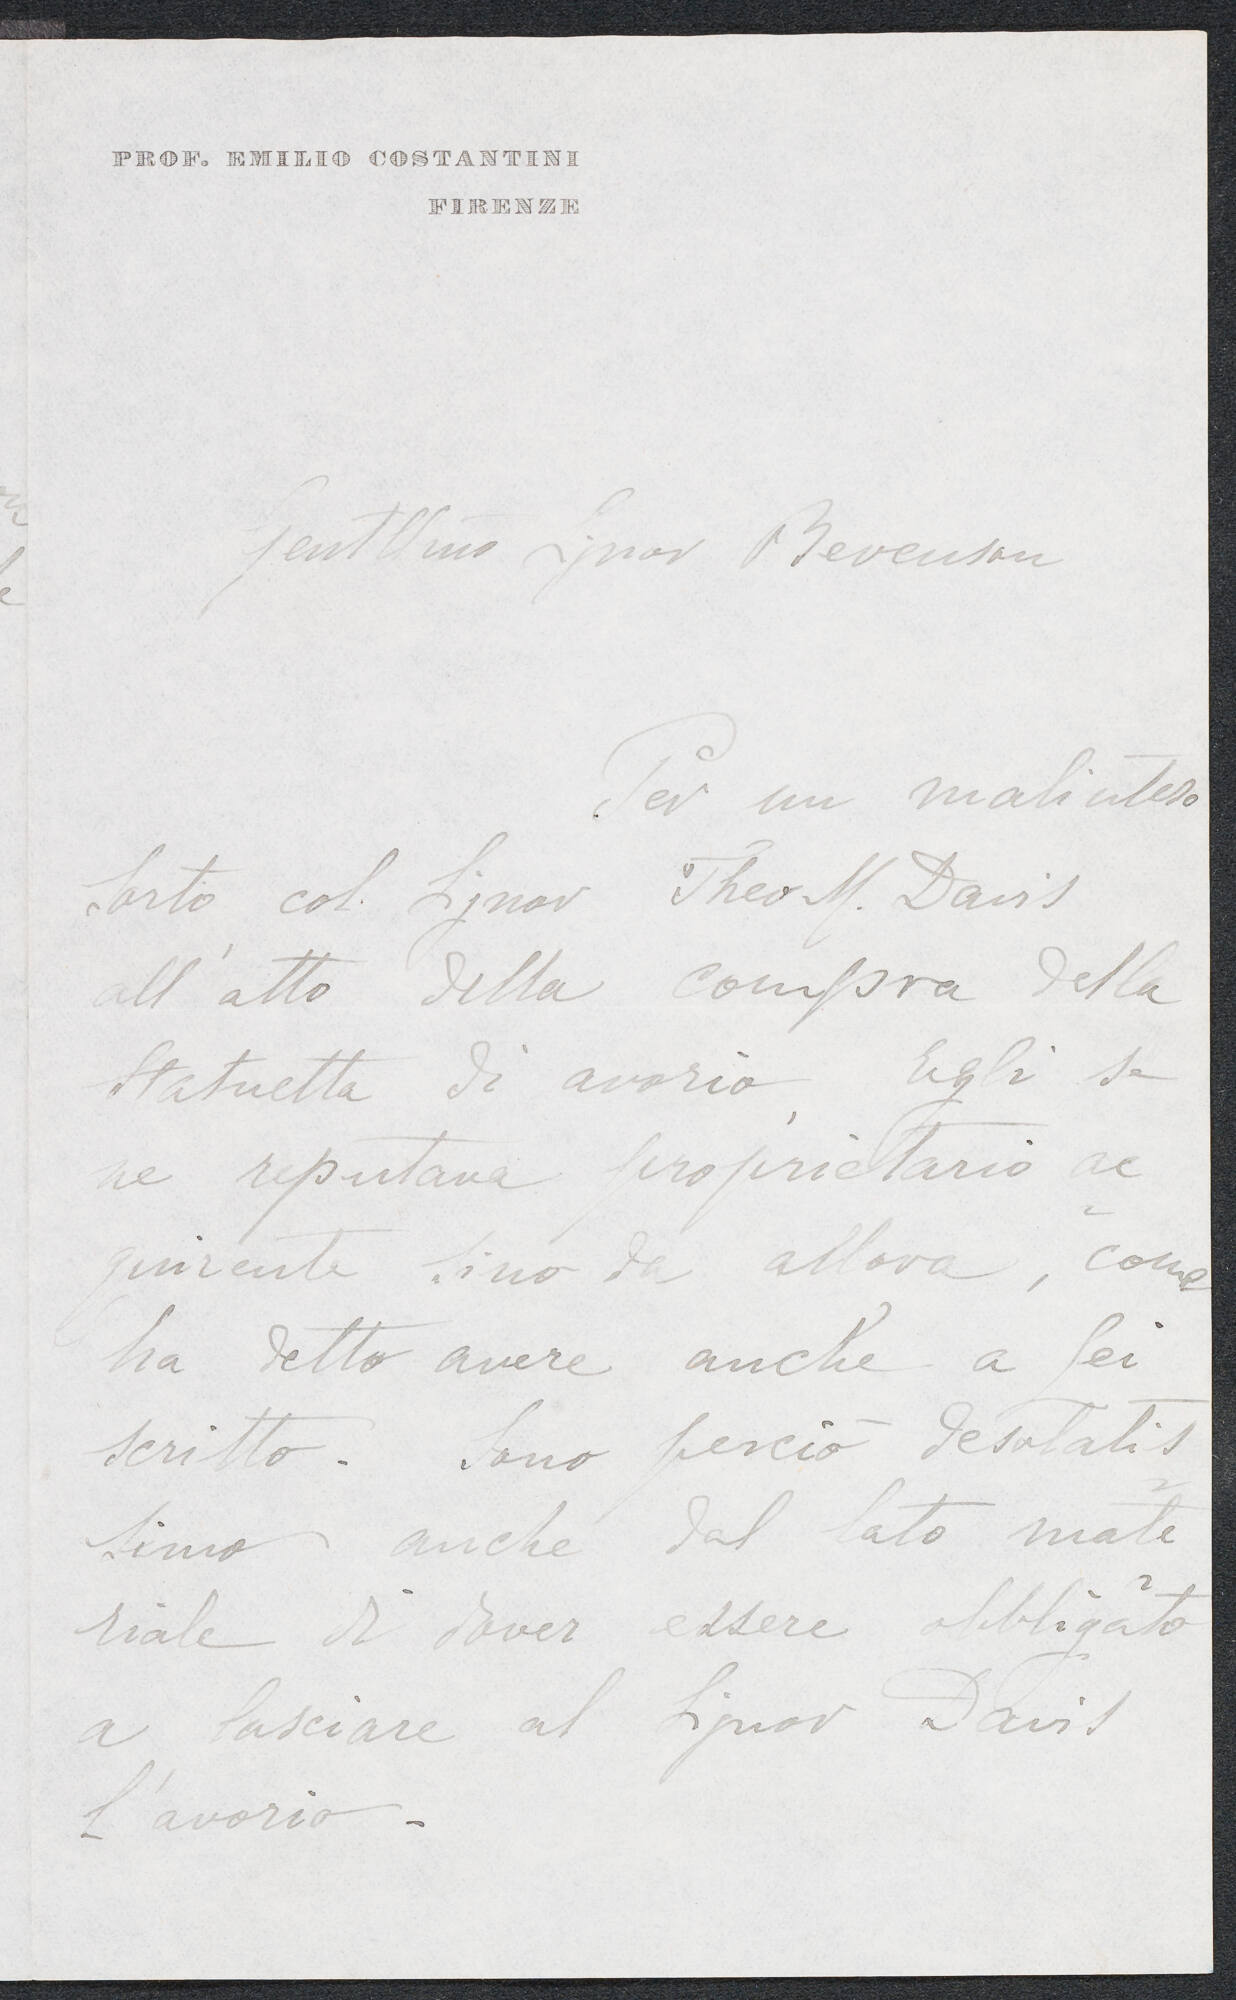 PROF. EMILIO COSTANTINI
FIRENZE
Gentillmo Signor Berenson
Per un malinteso
sorto col Signor Theo M. Davis
all'atto della compra della
statuetta di avorio, Egli se
ne reputava proprietario ac
quirente sino da allora, come
ha detto avere anche a Lei
scritto. Sono perciò desolatis
simo anche dal lato mate
riale di dover essere obbligato
a lasciare al Signor Davis
l'avorio.